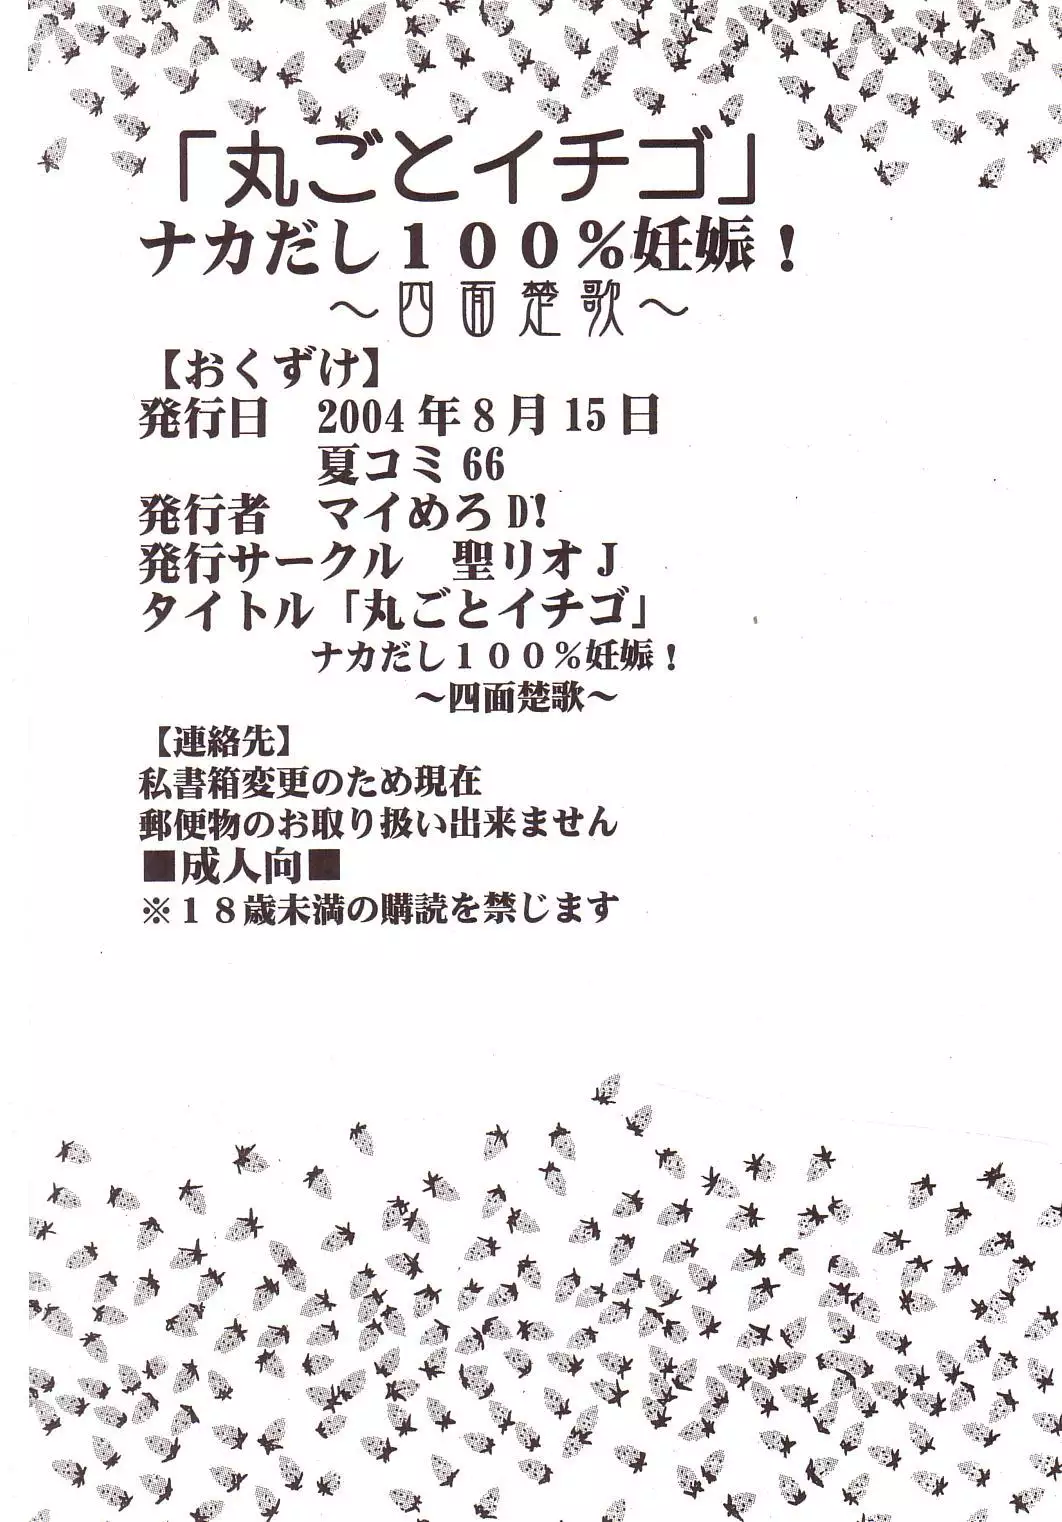 「丸ごとイチゴ」
ナカだし１００％妊娠！
～四面楚歌～
【おくずけ】
発行日　2004年8月15日
夏コミ66
発行者　マイめろD!
発行サークル　聖リオJ
タイトル「丸ごとイチゴ」
ナカだし１００％妊娠！
～四面楚歌～
【連絡先】
私書箱変更のため現在
郵便物のお取り扱い出来ません
■成人向■
※１８歳未満の購読を禁じます